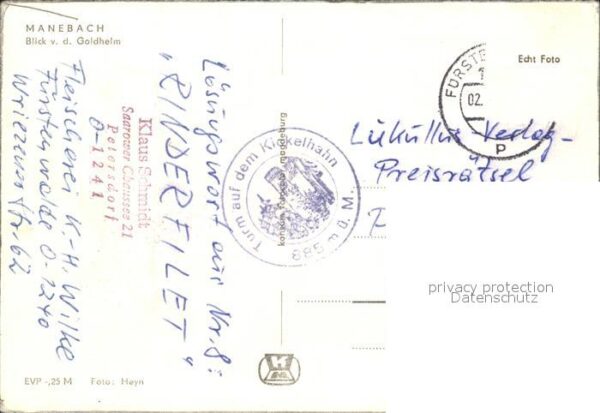 MANEBACH
Blick v. d. Goldhelm
Echt Foto
FÜRSTE
02.
P
Lösungswort aus Nr. 8:
"RINDERFILET"
Klaus Schmidt
Saarower Chaussee 21
Petersdorf
O-1241
Fleischerei K.-H. Wilke
Fürstenwalde O-1240
Wriezener Str. 62
Turm auf dem Kickelhahn
885 m ü. M.
Lukullus-Verlag-
Preisrätsel
privacy protection
Datenschutz
EVP -,25 M Foto: Heyn